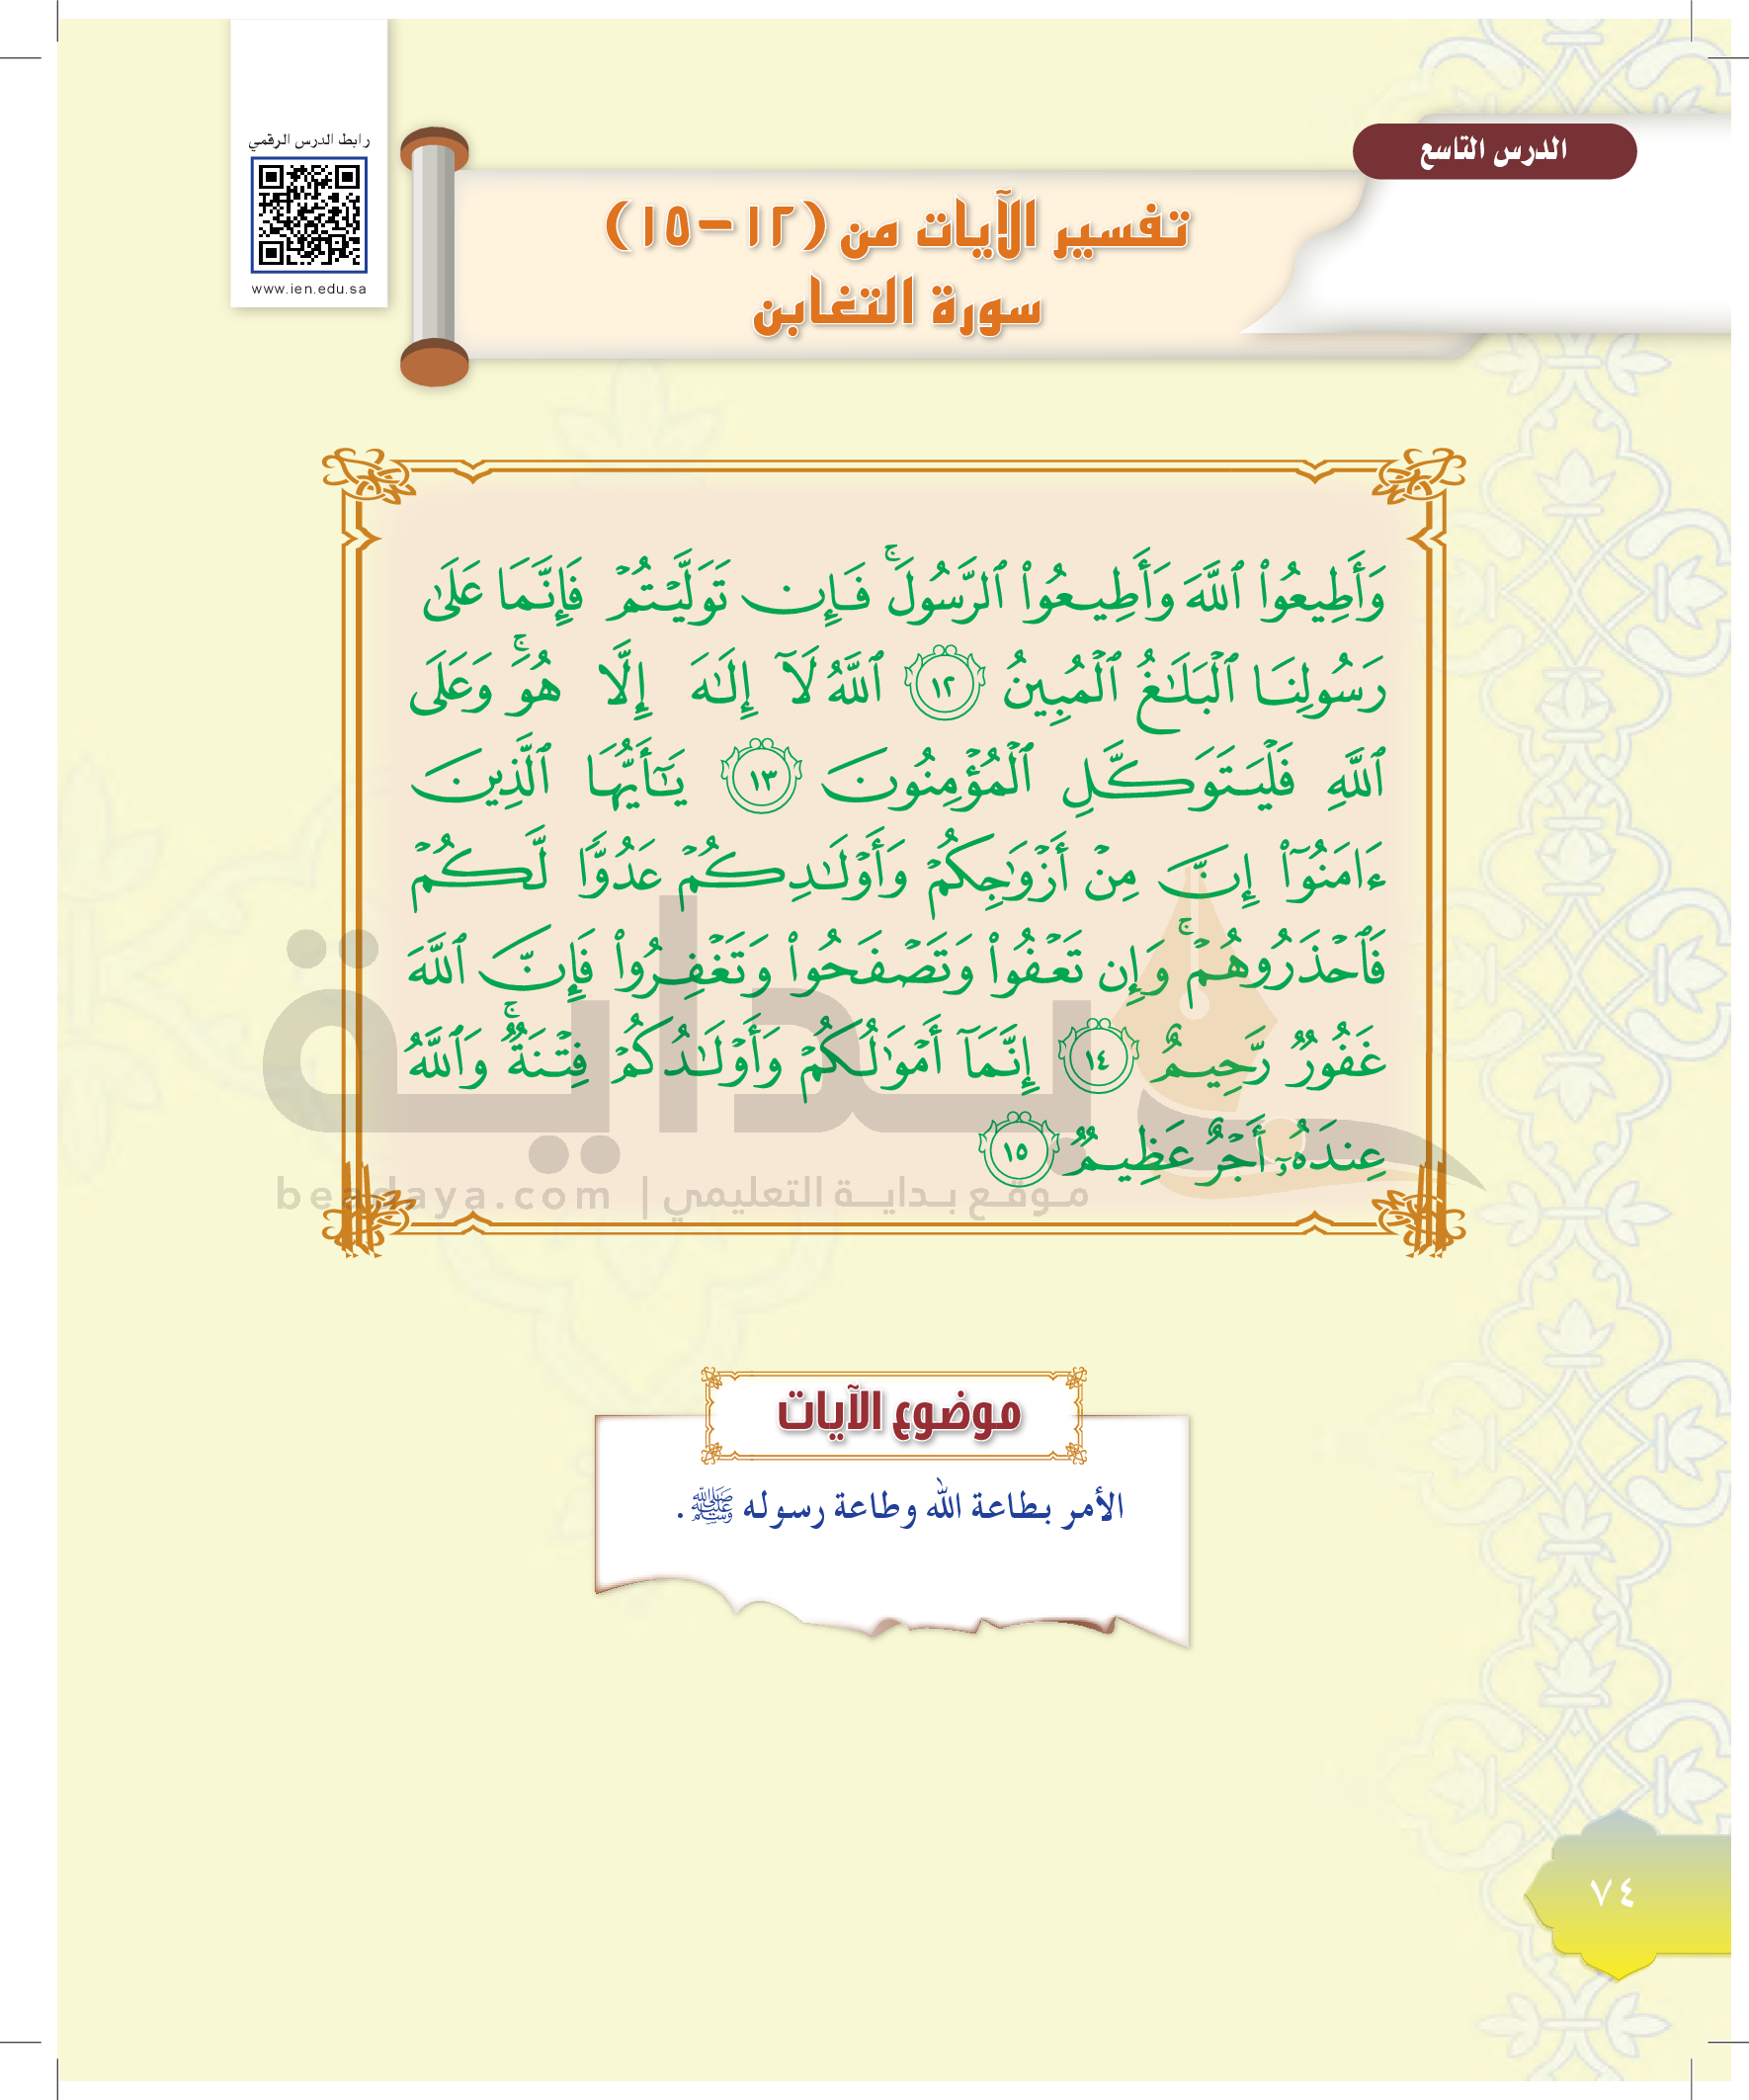 الدرس التاسع
رابط الدرس الرقمي
www.ien.edu.sa
تفسير الآيات من (١٢-١٥)
سورة التغابن
وَأَطِيعُواْ ٱللَّهَ وَأَطِيعُواْ ٱلرَّسُولَۚ فَإِن تَوَلَّيۡتُمۡ فَإِنَّمَا عَلَىٰ
رَسُولِنَا ٱلۡبَلَٰغُ ٱلۡمُبِينُ ١٢ ٱللَّهُ لَآ إِلَٰهَ إِلَّا هُوَۚ وَعَلَى
ٱللَّهِ فَلۡيَتَوَكَّلِ ٱلۡمُؤۡمِنُونَ ١٣ يَٰٓأَيُّهَا ٱلَّذِينَ
ءَامَنُوٓاْ إِنَّ مِنۡ أَزۡوَٰجِكُمۡ وَأَوۡلَٰدِكُمۡ عَدُوّٗا لَّكُمۡ
فَٱحۡذَرُوهُمۡۚ وَإِن تَعۡفُواْ وَتَصۡفَحُواْ وَتَغۡفِرُواْ فَإِنَّ ٱللَّهَ
غَفُورٞ رَّحِيمٌ ١٤ إِنَّمَآ أَمۡوَٰلُكُمۡ وَأَوۡلَٰدُكُمۡ فِتۡنَةٞۚ وَٱللَّهُ
عِندَهُۥٓ أَجۡرٌ عَظِيمٞ ١٥
بداية
موقع بداية التعليمي | beadaya.com
موضوع الآيات
الأمر بطاعة الله وطاعة رسوله ﷺ .
٧٤